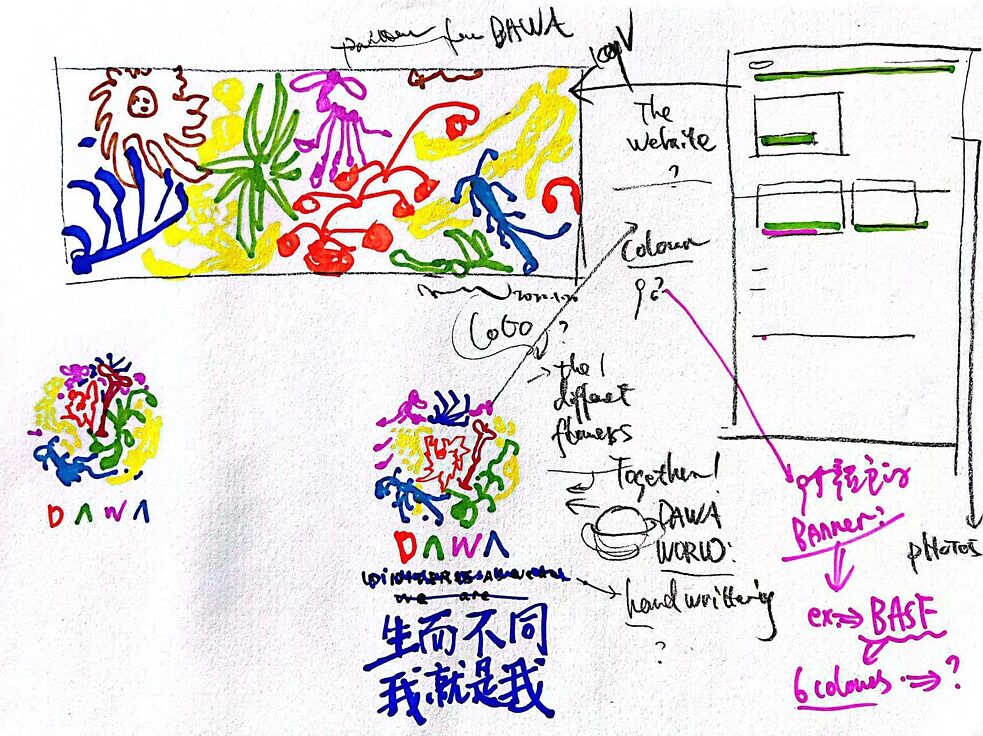 for DAWA
The
website
?
Colour
?
LOGO ?
the
different
flowers
Together!
DAWA
WORLD:
handwrittering
?
DAWA
DAWA
we are
生而不同
我就是我
BANNER:
ex: ⇒ BASF
6 colours ⇒ ?
PHOTOS